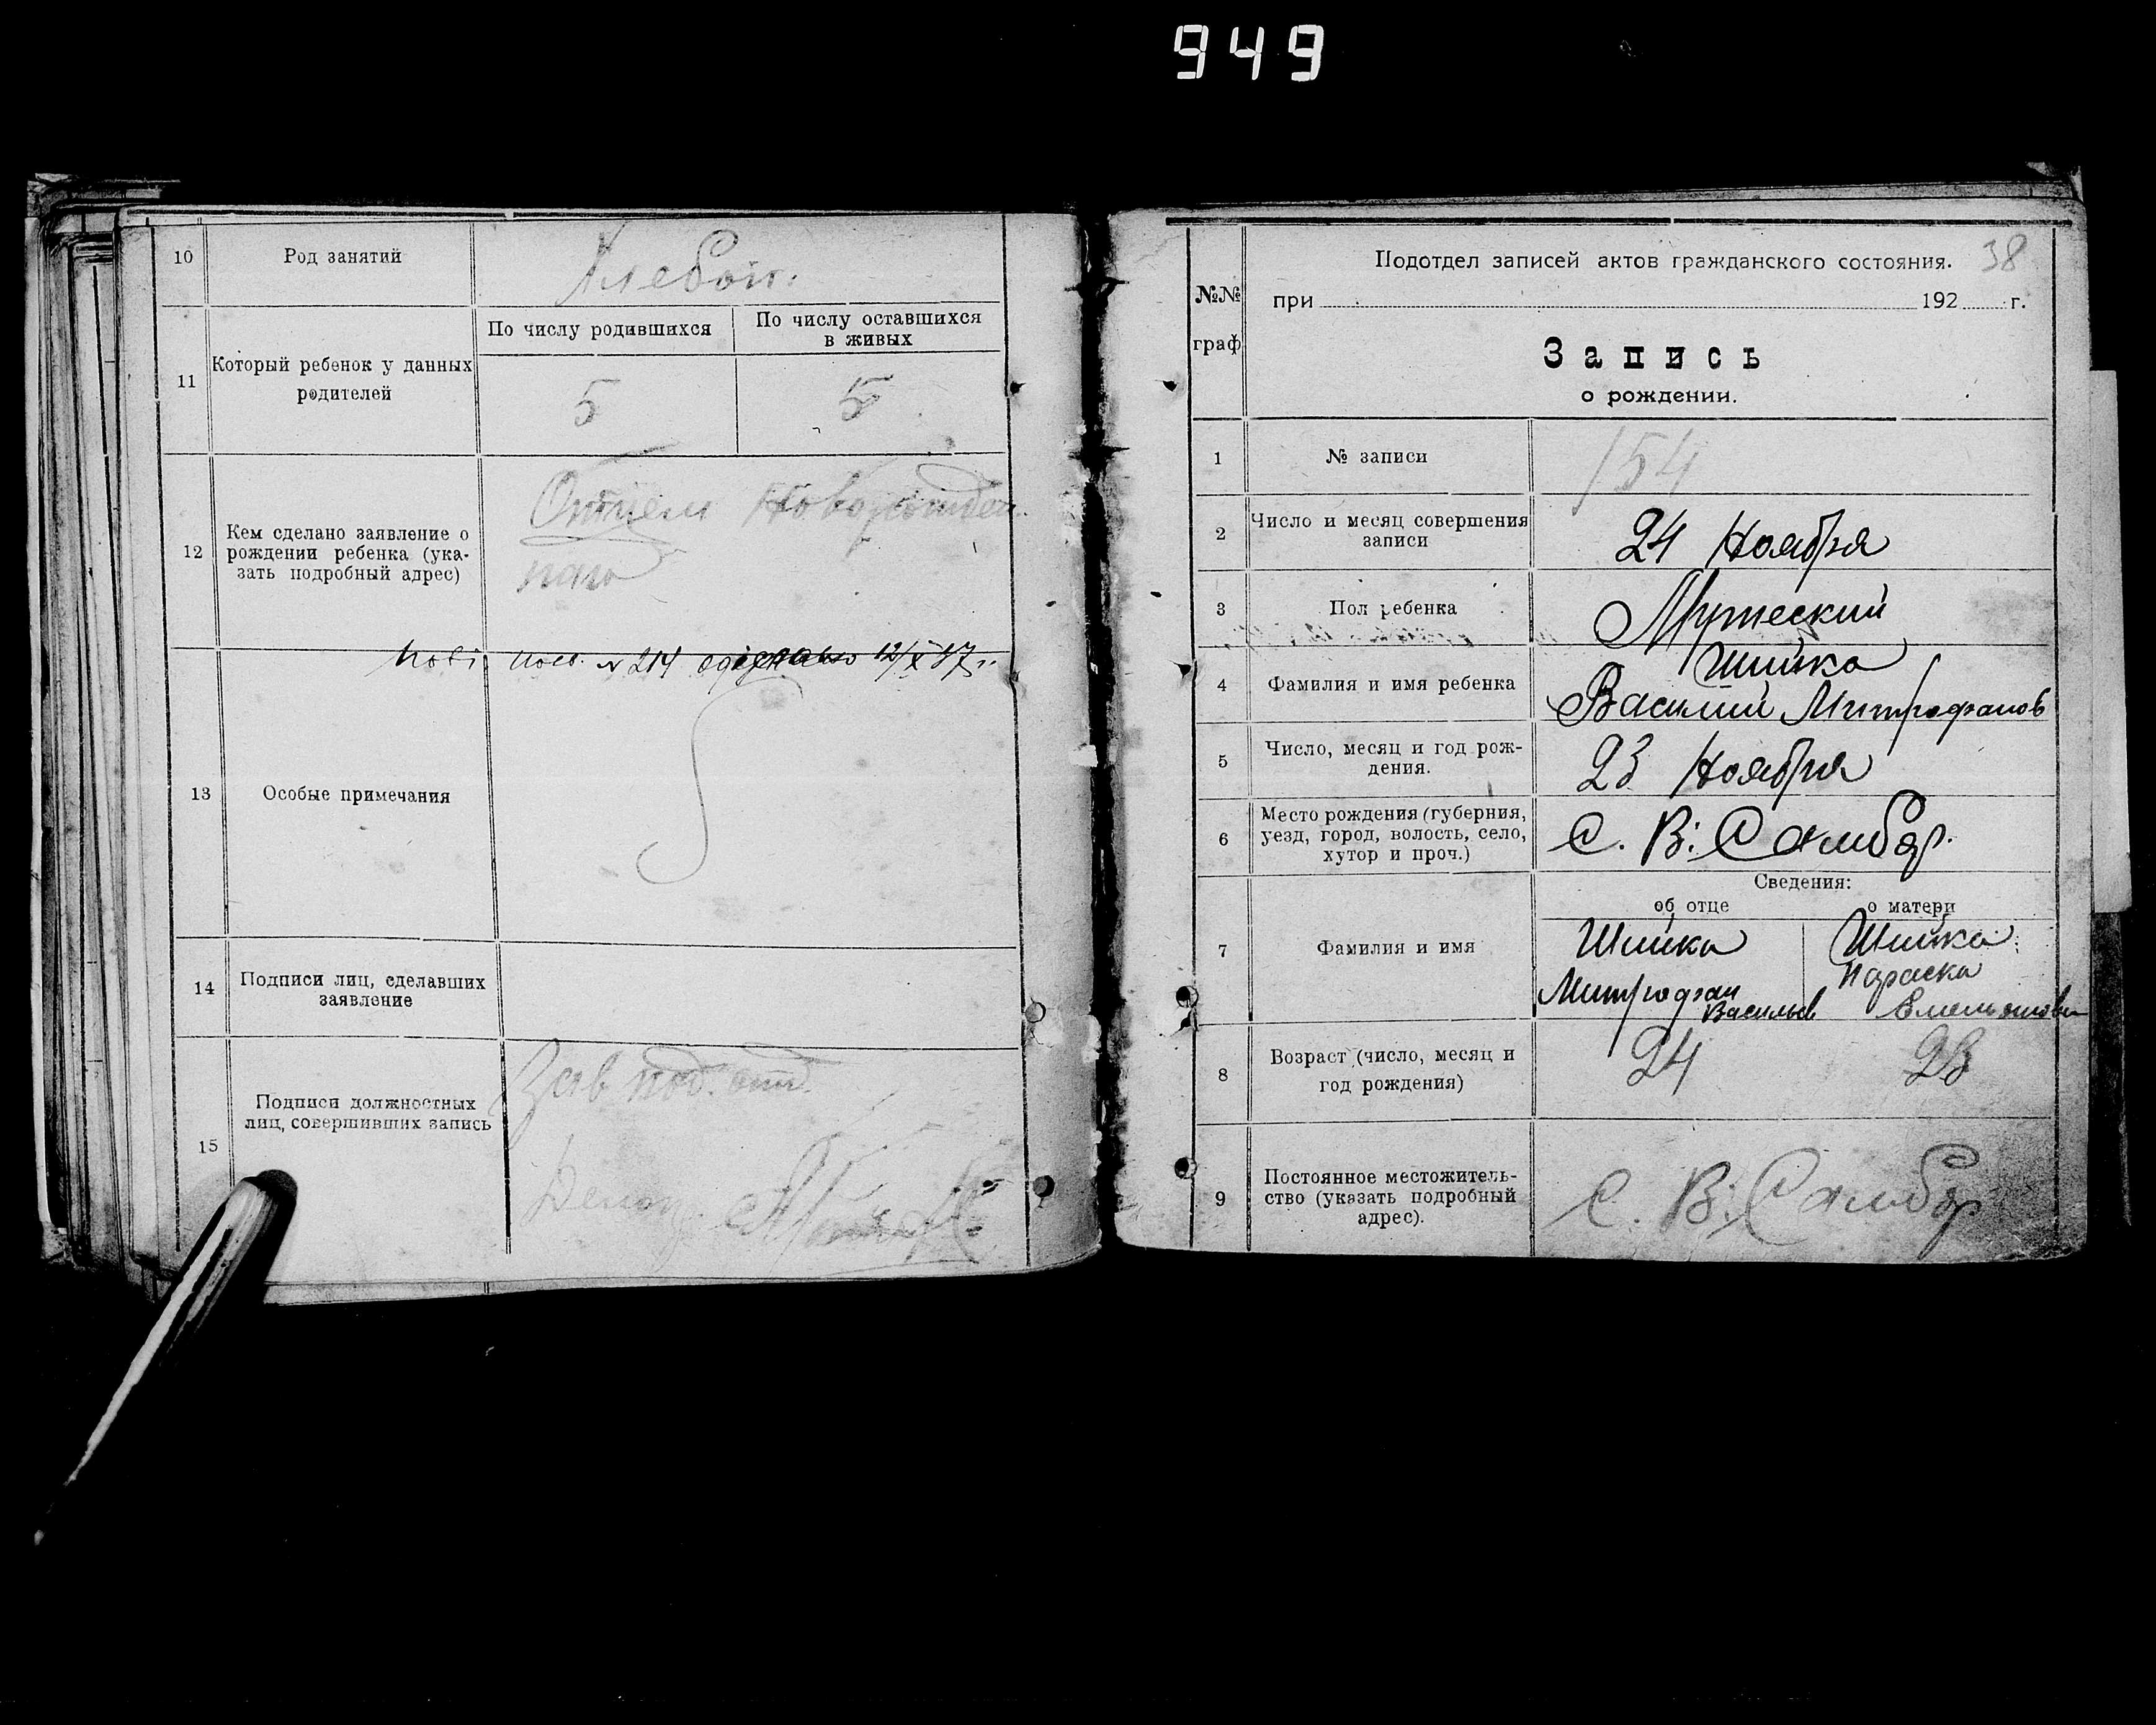 949
10
Род занятий
Хлебоп.
11
Который ребенок у данных
родителей
По числу родившихся
По числу оставшихся
в живых
5
5
12
Кем сделано заявление о
рождении ребенка (ука-
зать подробный адрес)
Отцем Новорожден.
наго
№ 214 12/X 37 г.
13
Особые примечания
14
Подписи лиц, сделавших
заявление
15
Подписи должностных
лиц, совершивших запись
Зав под. отд.
Делоп.
№№
граф
Подотдел записей актов гражданского состояния.
38
при 192 г.
Запись
о рождении.
1
№ записи
154
2
Число и месяц совершения
записи
24 Ноября
3
Пол ребенка
Мужеский
4
Фамилия и имя ребенка
Шийка
Василий Митрофанов
5
Число, месяц и год рож-
дения.
23 Ноября
6
Место рождения (губерния,
уезд, город, волость, село,
хутор и проч.)
С. В: Самбор.
Сведения:
об отце
о матери
7
Фамилия и имя
Шийка
Митрофан
Васильев
Шийка
Параска
Емельянова
8
Возраст (число, месяц и
год рождения)
24
23
9
Постоянное местожитель-
ство (указать подробный
адрес).
С. В: Самбор